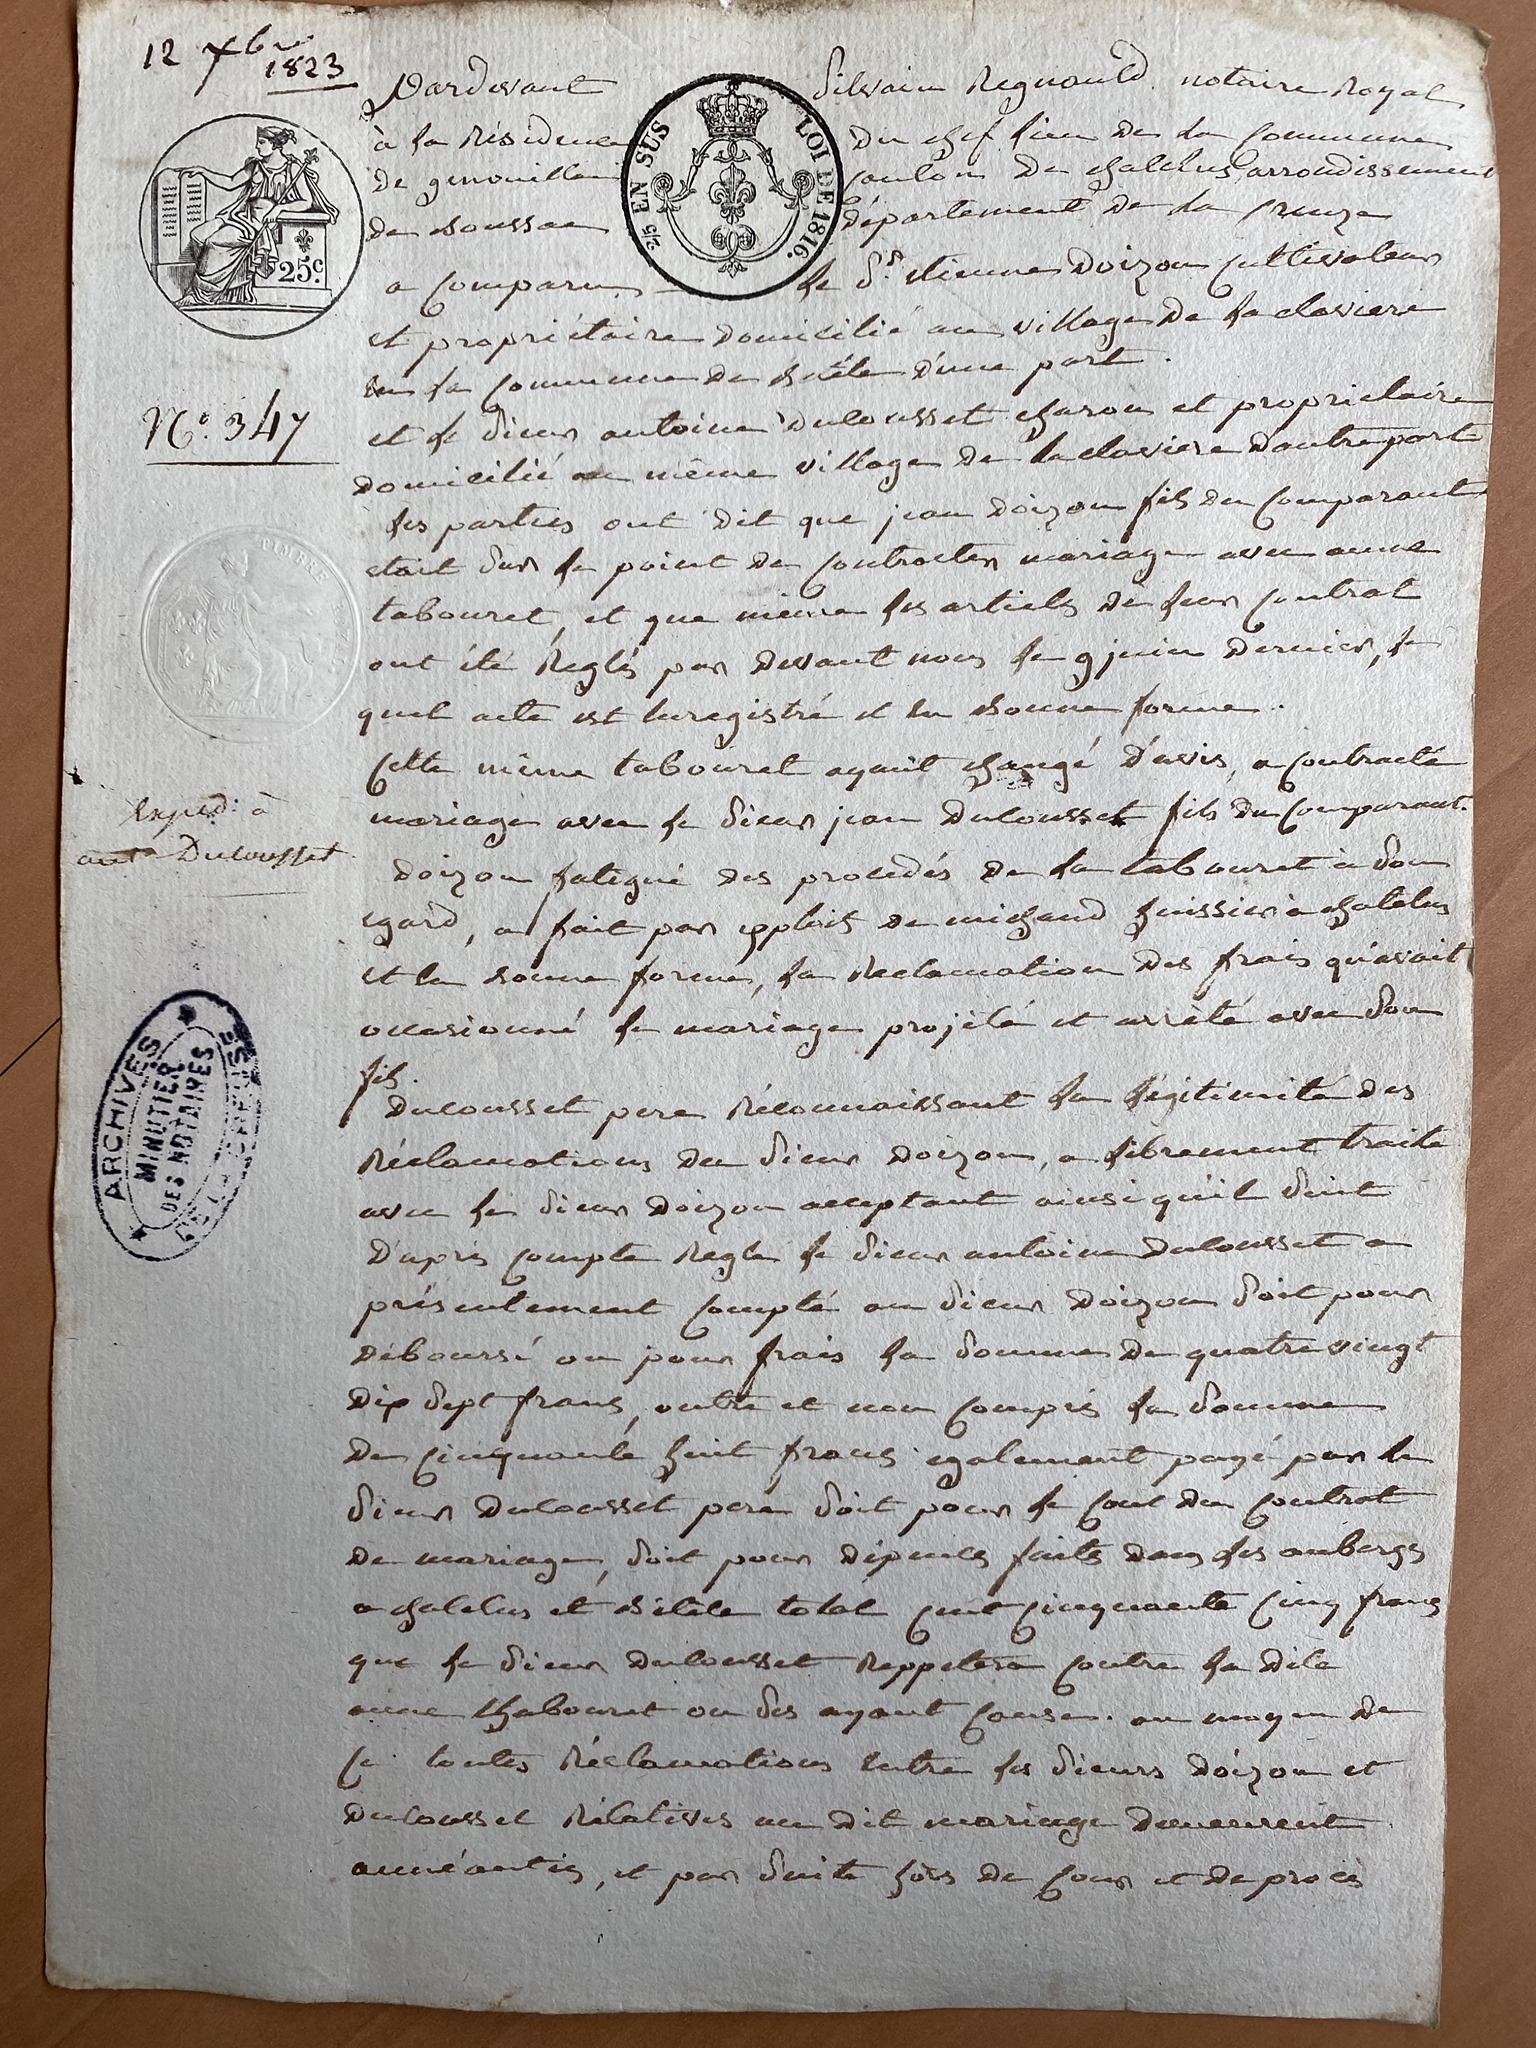 12 Xbre
1823
Pardevant Silvain Regnauld notaire Royal
à la Résidence du chef lieu de la Commune
de genouillac Canton de chatelus, arrondissement
de Boussac département de la Creuze
2/5 EN SUS LOI DE 1816.
25c.
a comparu le Sr. etienne Doizon Cultivateur
et propriétaire domicilié au village de la claviere
en la Commune de Bétête d'une part.
No. 347
et le Sieur antoine Ducousset charon et proprietaire
domicilié au même village de la claviere d'autre part
les parties ont dit que jean Doizon fils du Comparant
TIMBRE ROYAL
etait sur le point de Contracter mariage avec anne
tabouret, et que même les articles de leur Contrat
ont été Réglés par devant nous le 9 juin dernier, le
quel acte est enregistré et en bonne forme.
Cette même tabouret ayant changé d'avis, a contracté
exped: à
ant Ducousset
mariage avec le Sieur jean Ducousset fils du Comparant.
Doizon fatigué des procédés de la tabouret à son
egard, a fait par exploit de michaud huissier à chatelus
et en bonne forme, la Réclamation des frais qu'avait
occasionné le mariage projeté et arrêté avec son
fils.
ARCHIVES
MINUTIER
DES NOTAIRES
DE LA CREUSE
Ducousset pere Réconnaissant la légitimité des
Réclamations du Sieur Doizon, a librement traité
avec le Sieur Doizon acceptant ainsi qu'il suit
D'après Compte Reglé le Sieur antoine Ducousset a
présentement Compté au Sieur Doizon soit pour
déboursé ou pour frais la somme de quatre vingt
dix sept francs, outre et non Compris la somme
de cinquante huit francs egalement payé par le
Sieur Ducousset pere soit pour le Cout du Contrat
de mariage, soit pour dépences faites dans les auberges
a chatelus et Bétete total cent cinquante cinq francs
que le Sieur Ducousset Reppetera contre la dite
anne thabouret ou ses ayant Cause. au moyen de
Ce toutes Réclamations entre les Sieurs Doizon et
Ducousset Rélatives au dit mariage demeurent
annéanties, et par suite hors de Cour et de procès